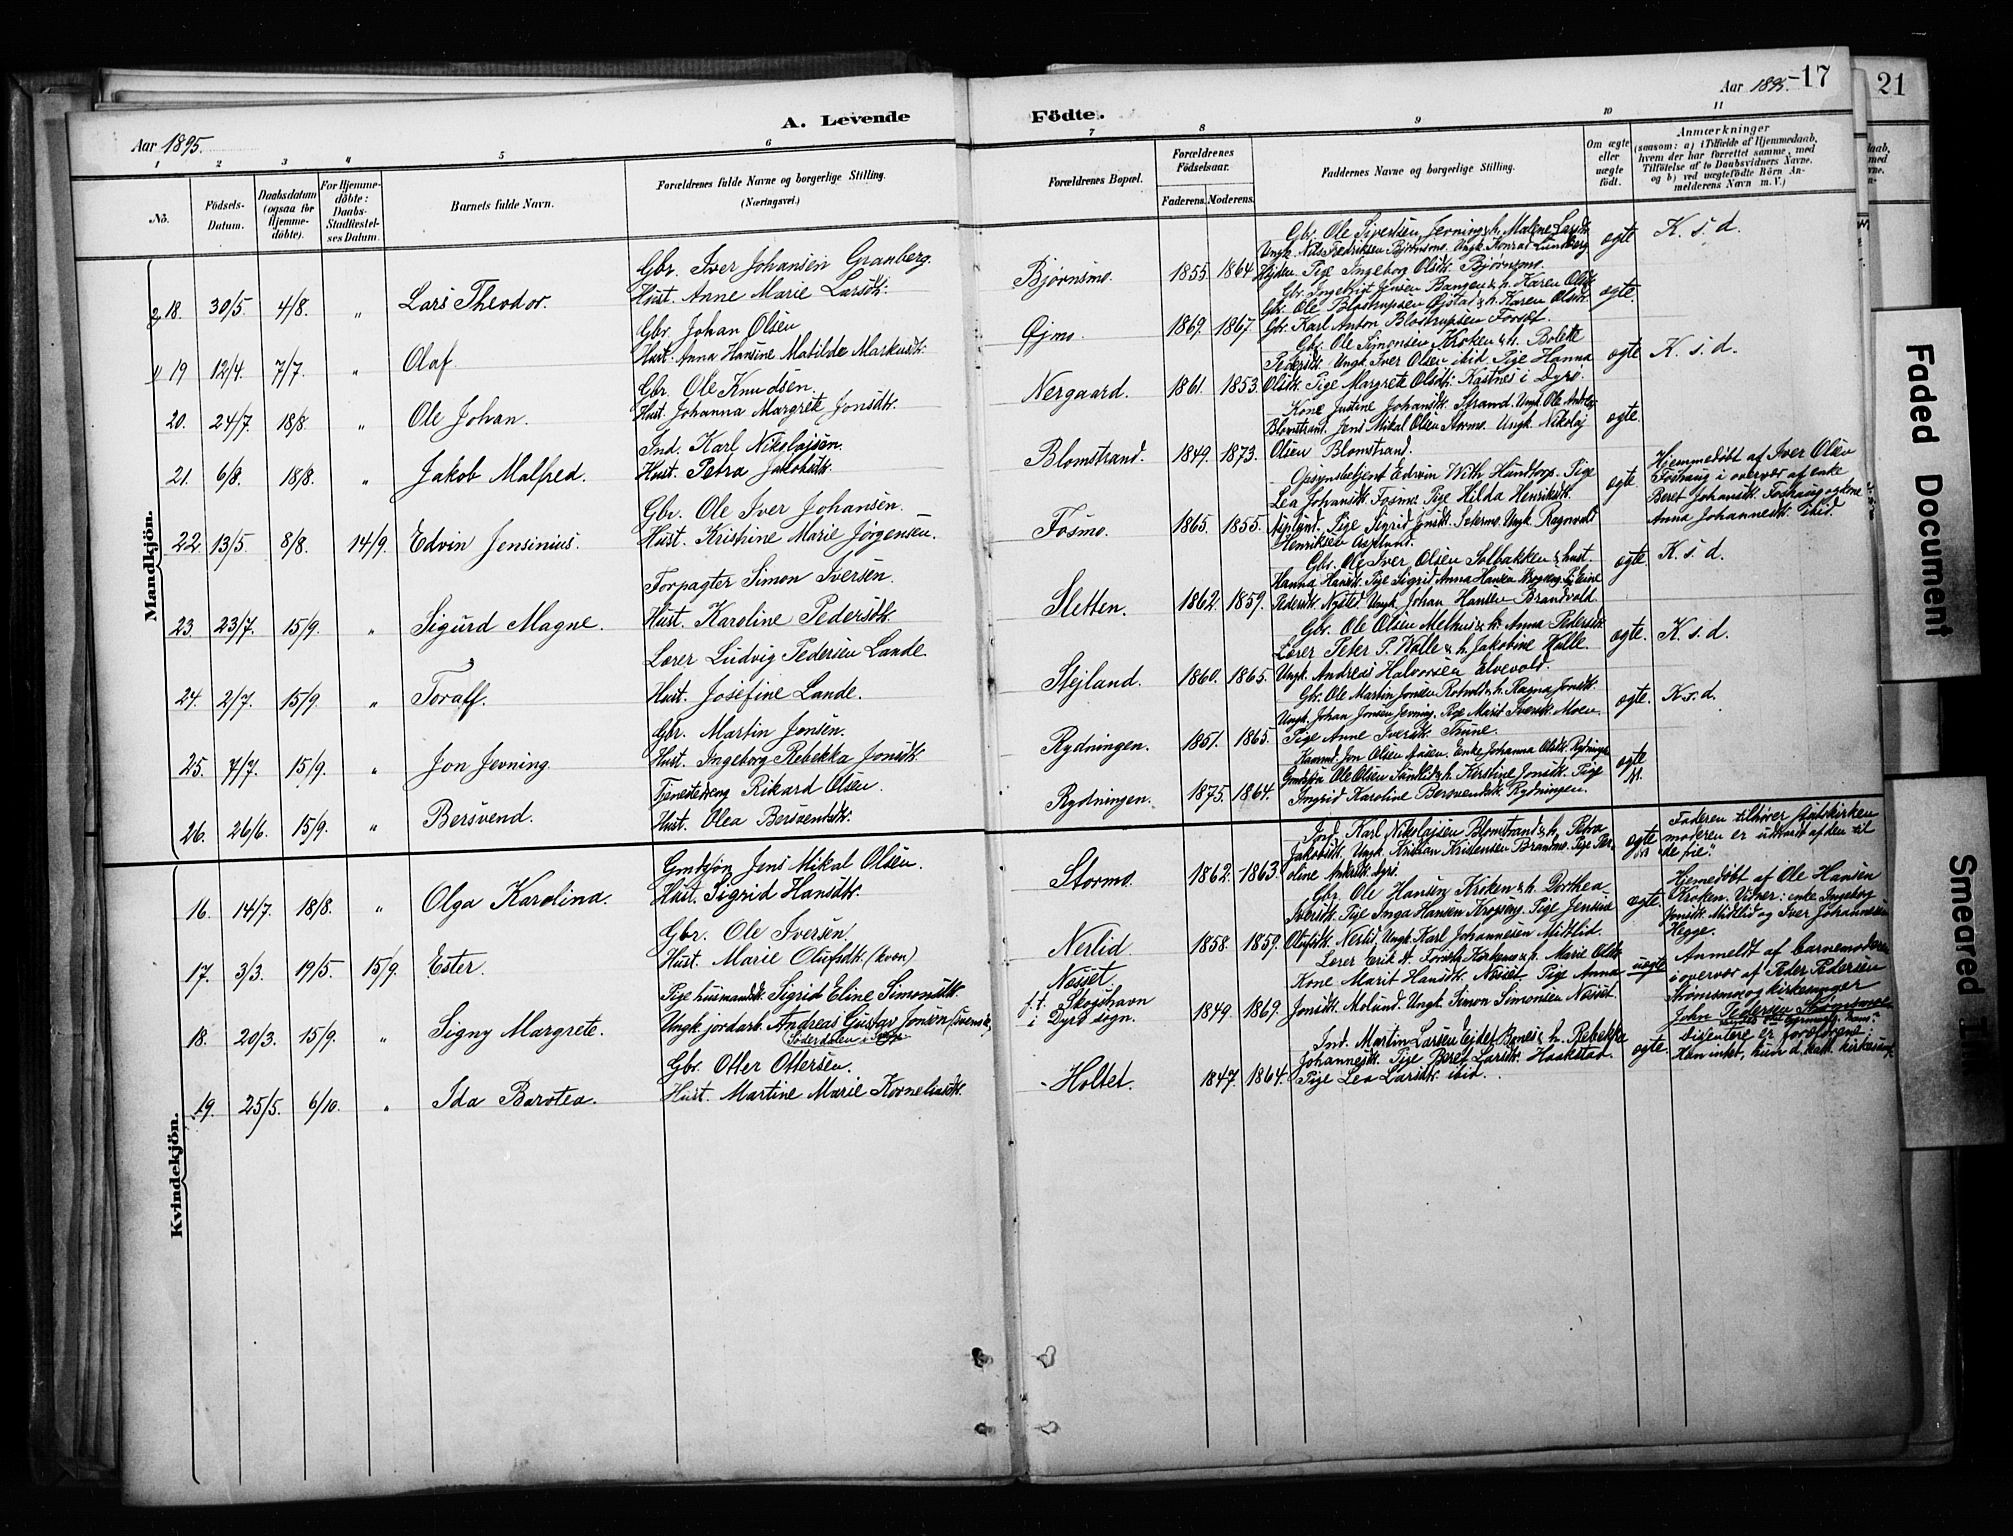 A. Levende Födte.
Aar 1895.
Aar 1895. 17
21
1 2 3 4 5 6 7 8 9 10 11
No.
Födsels-Datum.
Daabsdatum (ogsaa for Hjemme-döbte).
For Hjemme-döbte: Daabs-Stadfæstel-ses Datum.
Barnets fulde Navn.
Forældrenes fulde Navne og borgerlige Stilling. (Næringsvei.)
Forældrenes Bopæl.
Forældrenes Födselsaar.
Faderens. Moderens.
Faddernes Navne og borgerlige Stilling.
Om ægte eller uægte födt.
Anmærkninger
(saasom: a) i Tilfælde af Hjemmedaab,
hvem der har forrettet samme, med
Tilföielse af to Daabsvidners Navne.
og b) ved uægtefödte Börn An-
melderens Navn m. V.)
Mandkjön.
18. 30/5. 4/8. " Lars Theodor.
Gbr. Iver Johansen Granberg.
Hust. Anne Marie Larsdtr.
Bjørnsmo. 1855. 1864
Gbr. Ole Sivertsen Jerning & h. Malene Larsdtr.
Ungk. Nils Fredriksen Bjørnsmo. Ungk. Konrad Lundberg
Pige Ingeborg Olsdtr. Bjørnsmo.
ægte K. s. d.
19 12/4. 7/7. " Olaf.
Gbr. Johan Olsen
Hust. Anna Hansine Matilde Markusdtr.
Øjmo. 1869. 1867.
Gbr. Ingebrigt Jensen Bangen & h. Karen Olsdtr.
Gbr. Ole Blostrupsen Øjstad & h. Karen Olsdtr.
Gbr. Karl Anton Blostrupsen Forset.
ægte.
20. 24/7. 18/8. " Ole Johan.
Gbr. Ole Knudsen.
Hust. Johanna Margrete Jonsdtr.
Nergaard. 1861. 1853.
Gbr. Ole Simonsen Kroken & h. Bolette
Pedersdtr. Ungk. Iver Olsen ibid. Pige Hanna
Olsdtr. Pige Margrete Olsdtr. Kastnes i Dyrø
ægte K. s. d.
21. 6/8. 18/8. " Jakob Malfred.
Ind. Karl Nikolajsen.
Hust. Petra Jakobsdtr.
Blomstrand. 1849. 1873.
Kone Justine Johansdtr. Strand. Ungk. Ole Andreas
Blomstrand. Jens Mikal Olsen Stormo. Ungk. Nikolaj
Olsen Blomstrand.
ægte.
22. 13/5. 8/8. 14/9. Edvin Jensinius.
Gbr. Ole Iver Johansen.
Hust. Kristine Marie Jørgensen.
Fosmo. 1865. 1855.
Opsynsbetjent Edvin With Hundtorp. Pige
Lea Johansdtr. Fosmo. Pige Hilda Henriksdtr.
Asplund. Pige Sigrid Jonsdtr. Sætermo. Ungk. Ragnvald
Henriksen Asplund.
ægte
Hjemmedøbt af Iver Olsen
Foshaug i overvær af enke
Beret Johansdtr. Foshaug og kone
Anna Johannesdtr. ibid.
23. 23/7. 15/9. " Sigurd Magne.
Forpagter Simon Iversen.
Hust. Karoline Pedersdtr.
Sletten. 1862. 1859.
Gbr. Ole Iver Olsen Solbakken & hust.
Hanna Hansdtr. Pige Sigrid Anna Hansen Krogseng.
Pedersdtr. Nysted. Ungk. Johan Hansen Brandvold.
ægte K. s. d.
24. 2/7. 15/9. " Toralf.
Lærer Ludvig Pedersen Lande.
Hust. Josefine Lande.
Stejland. 1860. 1865.
Gbr. Ole Olsen Melhus & h. Anna Pedersdtr.
Lærer Peter P. Walle & h. Jakobine Walle.
Ungk. Andreas Halvorsen Elvevold.
ægte. K. s. d.
25. 7/7. 15/9. " Jon Jevning.
Gbr. Martin Jonsen.
Hust. Ingeborg Rebekka Jonsdtr.
Rydningen. 1851. 1865.
Gbr. Ole Martin Jonsen Rotvold & h. Ragna Jonsdtr.
Ungk. Johan Jonsen Jevning. Pige Marit Iversdtr. Moen.
Pige Anne Iversdtr. Thune.
ægte. K. s. d.
26. 26/6. 15/9. " Bersvend.
Tjenestedreng Rikard Olsen.
Hust. Olea Bersvendsdtr.
Rydningen. 1875. 1864.
Kaarmd. Jon Olsen Aasen. Enke Johanna Olsdtr. Rydningen
Gmdsfjøn Ole Olsen Sandlid & h. Kirstine Jonsdtr. Pige
Ingrid Karoline Bersvendsdtr. Rydningen.
ægte
Kvindekjön.
16. 14/7. 18/8. " Olga Karolina.
Gmdsfjøn Jens Mikal Olsen.
Hust. Sigrid Hansdtr.
Stormo. 1862. 1863.
Ind. Karl Nikolajsen Blomstrand & h. Petra
Jakobsdtr. Ungk. Kristian Kristensen Brandmo. Pige Per-
oline Andersdtr. ibid.
ægte
Faderen tilhører statskirken
moderen er udtraadt af den til
"de frie."
17. 3/3. 19/5. 15/9. Ester.
Gbr. Ole Iversen.
Hust. Marie Olufsdtr. (kvæn)
Nerlid. 1858. 1859.
Gbr. Ole Hansen Kroken & h. Dorthea
Iversdtr. Pige Inga Hansen Krogseng. Pige Jensine
Olufsdtr. Nerlid. Ungk. Karl Johannesen Midtlid.
ægte.
Hjemedøbt af Ole Hansen
Kroken. Vidner: enke Ingeborg
Jonsdtr. Midtlid og Iver Johannesen
Hegge.
18. 20/3. 15/9. " Signy Margrete.
Pige husmandsdtr. Sigrid Eline Simonsdtr.
Ungk. jordarb. Andreas Gustav Jonsen (svenske,
Søderdalen i
Næsset
f. t. Skogshavn
i Dyrø sogn. 1849. 1869.
Lærer Erik A. Kirknes & h. Marie Olsdtr.
Kone Marit Hansdtr. Næsset. Pige Anna
Jonsdtr. Molund. Ungk. Simon Simonsen Næsset.
uægte
Anmeldt af barnemoderen
i overvær af Peder Pedersen
Strømsmo og kirkesanger
John Pedersen Strømsmo
19. 25/5. 6/10. " Ida Barotea.
Gbr. Otter Ottersen.
Hust. Martine Marie Korneliusdtr.
Holtet. 1847. 1864.
Ind. Martin Larsen Ejdet Bones & h. Rebekke
Johannesdtr. Pige Beret Larsdtr. Haakstad.
Pige Lea Larsdtr. ibid.
ægte.
Disentere er forældrene:
Han intet, hun d. kath. kirkesamf.
Faded Document
Smeared I